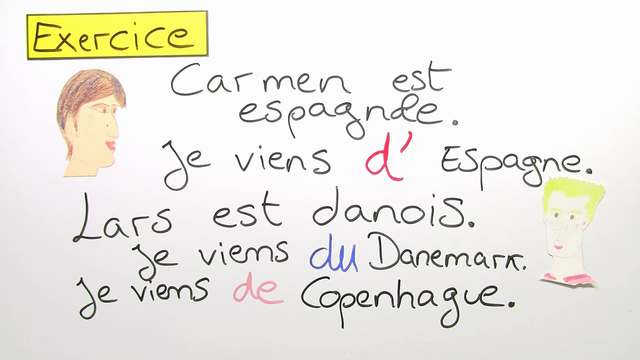 Exercice
Carmen est
espagnole.
Je viens d' Espagne.
Lars est danois.
Je viens du Danemark.
Je viens de Copenhague.